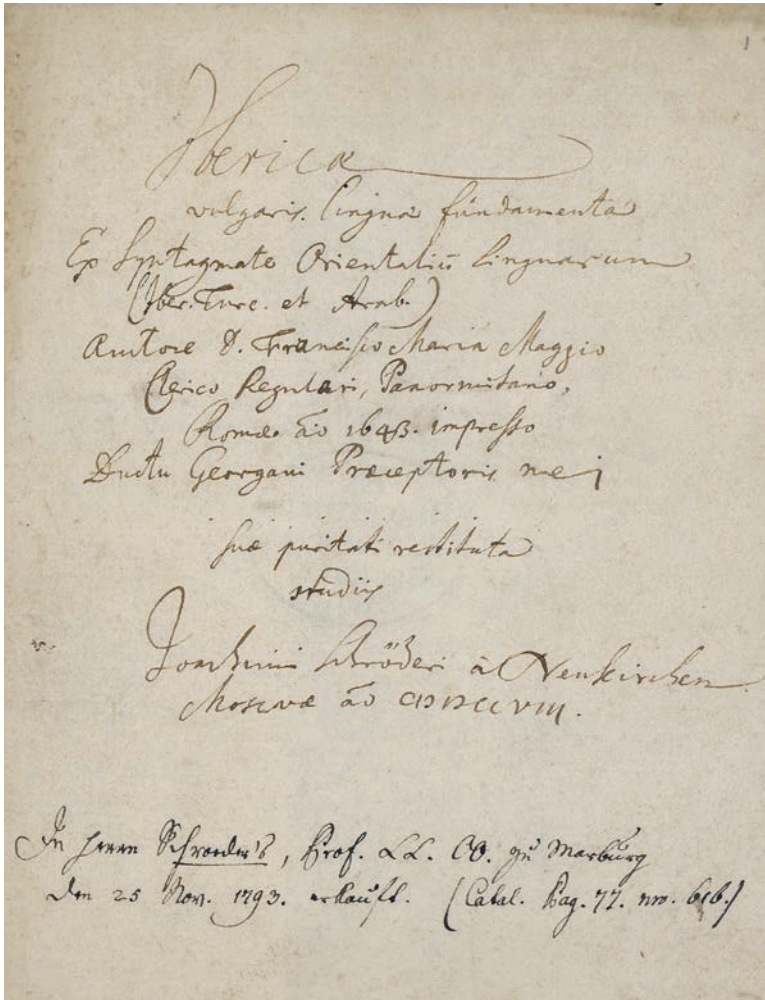 1
Ibericæ
vulgaris lingua fundamenta
Ex Syntagmate Orientaliū Linguarum
(Iber. Turc. et Arab.)
Auctore D. Francisco Maria Maggio
Clerico Regulari, Panormitano,
Romæ āo 1643. impresso
Ductu Georgani Præceptoris mei
suæ puritati restituta
studiis
Joachimi Schröderi à Neukirchen
Moscvæ āo CIƆIƆCCVIII.
In Herrn Schroeder's, Prof. LL. OO. zu Marburg
den 25 Nov. 1793. erkauft. (Catal. Pag. 77. nro. 616.)